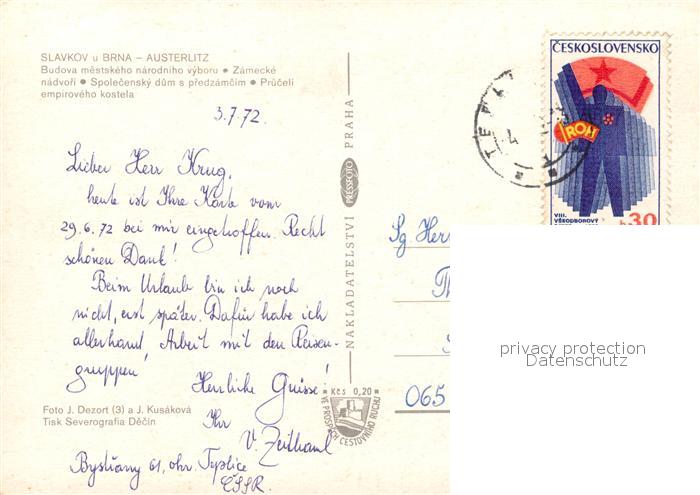 SLAVKOV u BRNA – AUSTERLITZ
Budova městského národního výboru • Zámecké
nádvoří • Společenský dům s předzámčím • Průčelí
empirového kostela
3.7.72.
Lieber Herr Krug,
heute ist Ihre Karte vom
29.6.72 bei mir eingetroffen. Recht
schönen Dank!
Beim Urlaub bin ich noch
nicht, erst später. Dafür habe ich
allerhand Arbeit mit den Reisen-
gruppen!
Herzliche Grüsse!
Ihr
V. Zeithaml
Bystřany 61, okr. Teplice
ČSSR.
Foto J. Dezort (3) a J. Kusáková
Tisk Severografia Děčín
NAKLADATELSTVÍ PRESSFOTO PRAHA
Kčs 0,20
VE PROSPĚCH CESTOVNÍHO RUCHU
ČESKOSLOVENSKO
ROH
VIII.
VŠEODBOROVÝ
30
Sg. Herr
065
privacy protection
Datenschutz